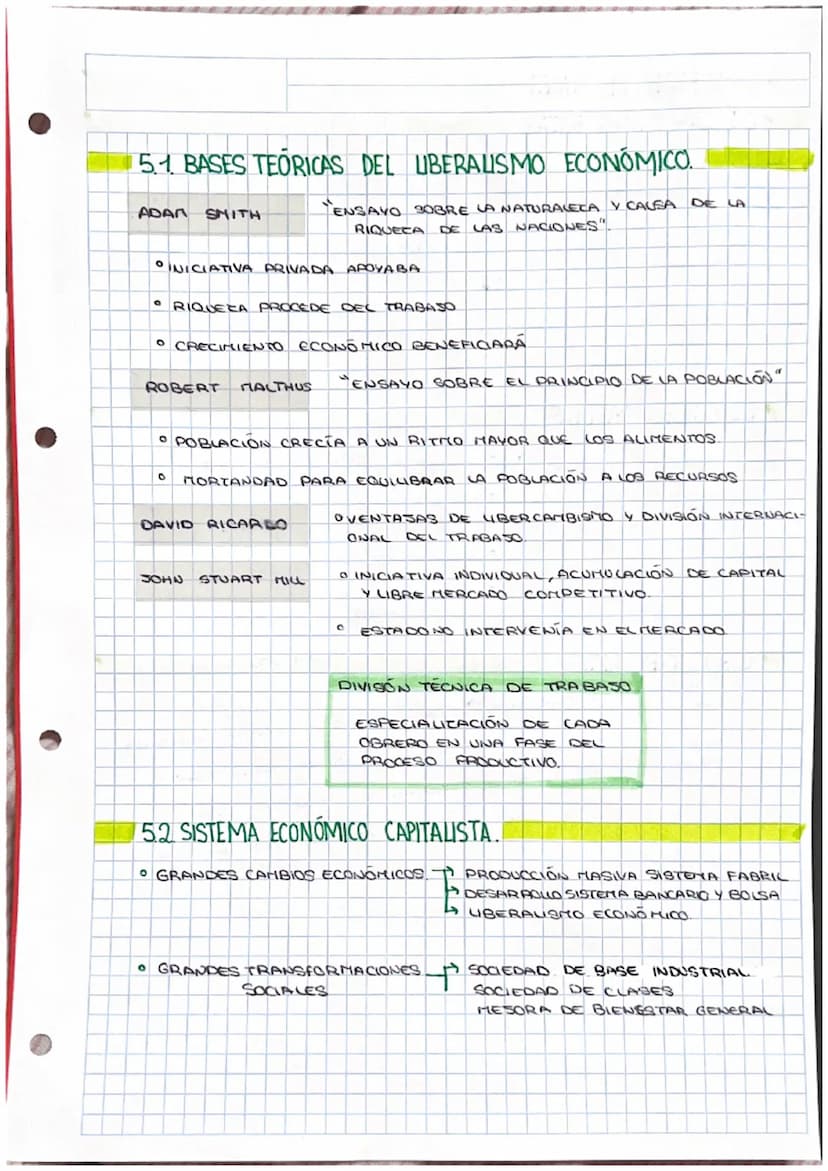 5.1. BASES TEÓRICAS DEL LIBERALISMO ECONÓMICO.
ADAM SMITH
"ENSAYO SOBRE LA NATURALEZA Y CAUSA DE LA
RIQUEZA DE LAS NACIONES".
° INICIATIVA PRIVADA APOYABA
° RIQUEZA PROCEDE DEL TRABAJO
° CRECIMIENTO ECONÓMICO BENEFICIARÁ
ROBERT MALTHUS
"ENSAYO SOBRE EL PRINCIPIO DE LA POBLACIÓN"
° POBLACIÓN CRECÍA A UN RITMO MAYOR QUE LOS ALIMENTOS.
° MORTANDAD PARA EQUILIBRAR LA POBLACIÓN A LOS RECURSOS
DAVID RICARDO
° VENTAJAS DE LIBERCAMBISMO Y DIVISIÓN INTERNACI-
ONAL DEL TRABAJO.
JOHN STUART MILL
° INICIATIVA INDIVIDUAL, ACUMULACIÓN DE CAPITAL
Y LIBRE MERCADO COMPETITIVO.
° ESTADO NO INTERVENÍA EN EL MERCADO.
DIVISÓN TÉCNICA DE TRABAJO
ESPECIALIZACIÓN DE CADA
OBRERO EN UNA FASE DEL
PROCESO PRODUCTIVO.
5.2 SISTEMA ECONÓMICO CAPITALISTA.
° GRANDES CAMBIOS ECONÓMICOS. → PRODUCCIÓN MASIVA SISTEMA FABRIL
→ DESARROLLO SISTEMA BANCARIO Y BOLSA
→ LIBERALISMO ECONÓMICO.
° GRANDES TRANSFORMACIONES → SOCIEDAD DE BASE INDUSTRIAL.
SOCIALES
SOCIEDAD DE CLASES
MEJORA DE BIENESTAR GENERAL